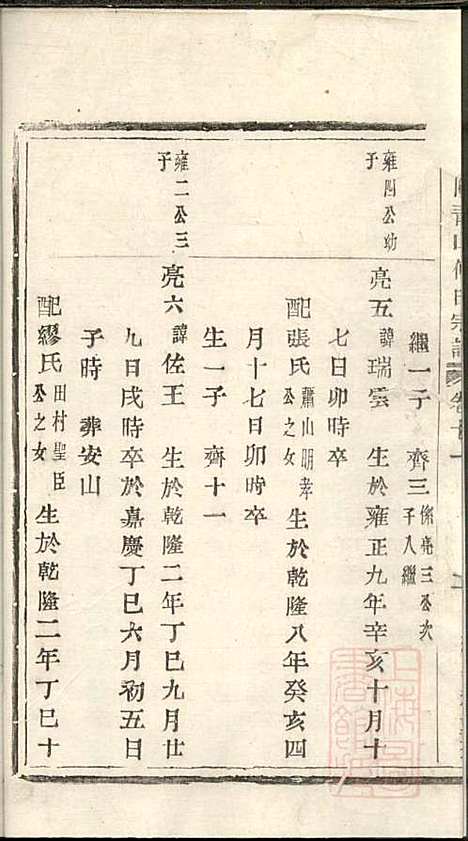 繼一子 齊三 係亮三公次子入繼
雍四公幼子
亮五 諱瑞雲 生於雍正九年辛亥十月十
七日卯時卒
配張氏 蕭山明孝公之女 生於乾隆八年癸亥四
月十七日卯時卒
生一子 齊十一
雍二公三子
亮六 諱佐王 生於乾隆二年丁巳九月廿
九日戌時卒於嘉慶丁巳六月初五日
子時 葬安山
配繆氏 田村聖臣公之女 生於乾隆二年丁巳十